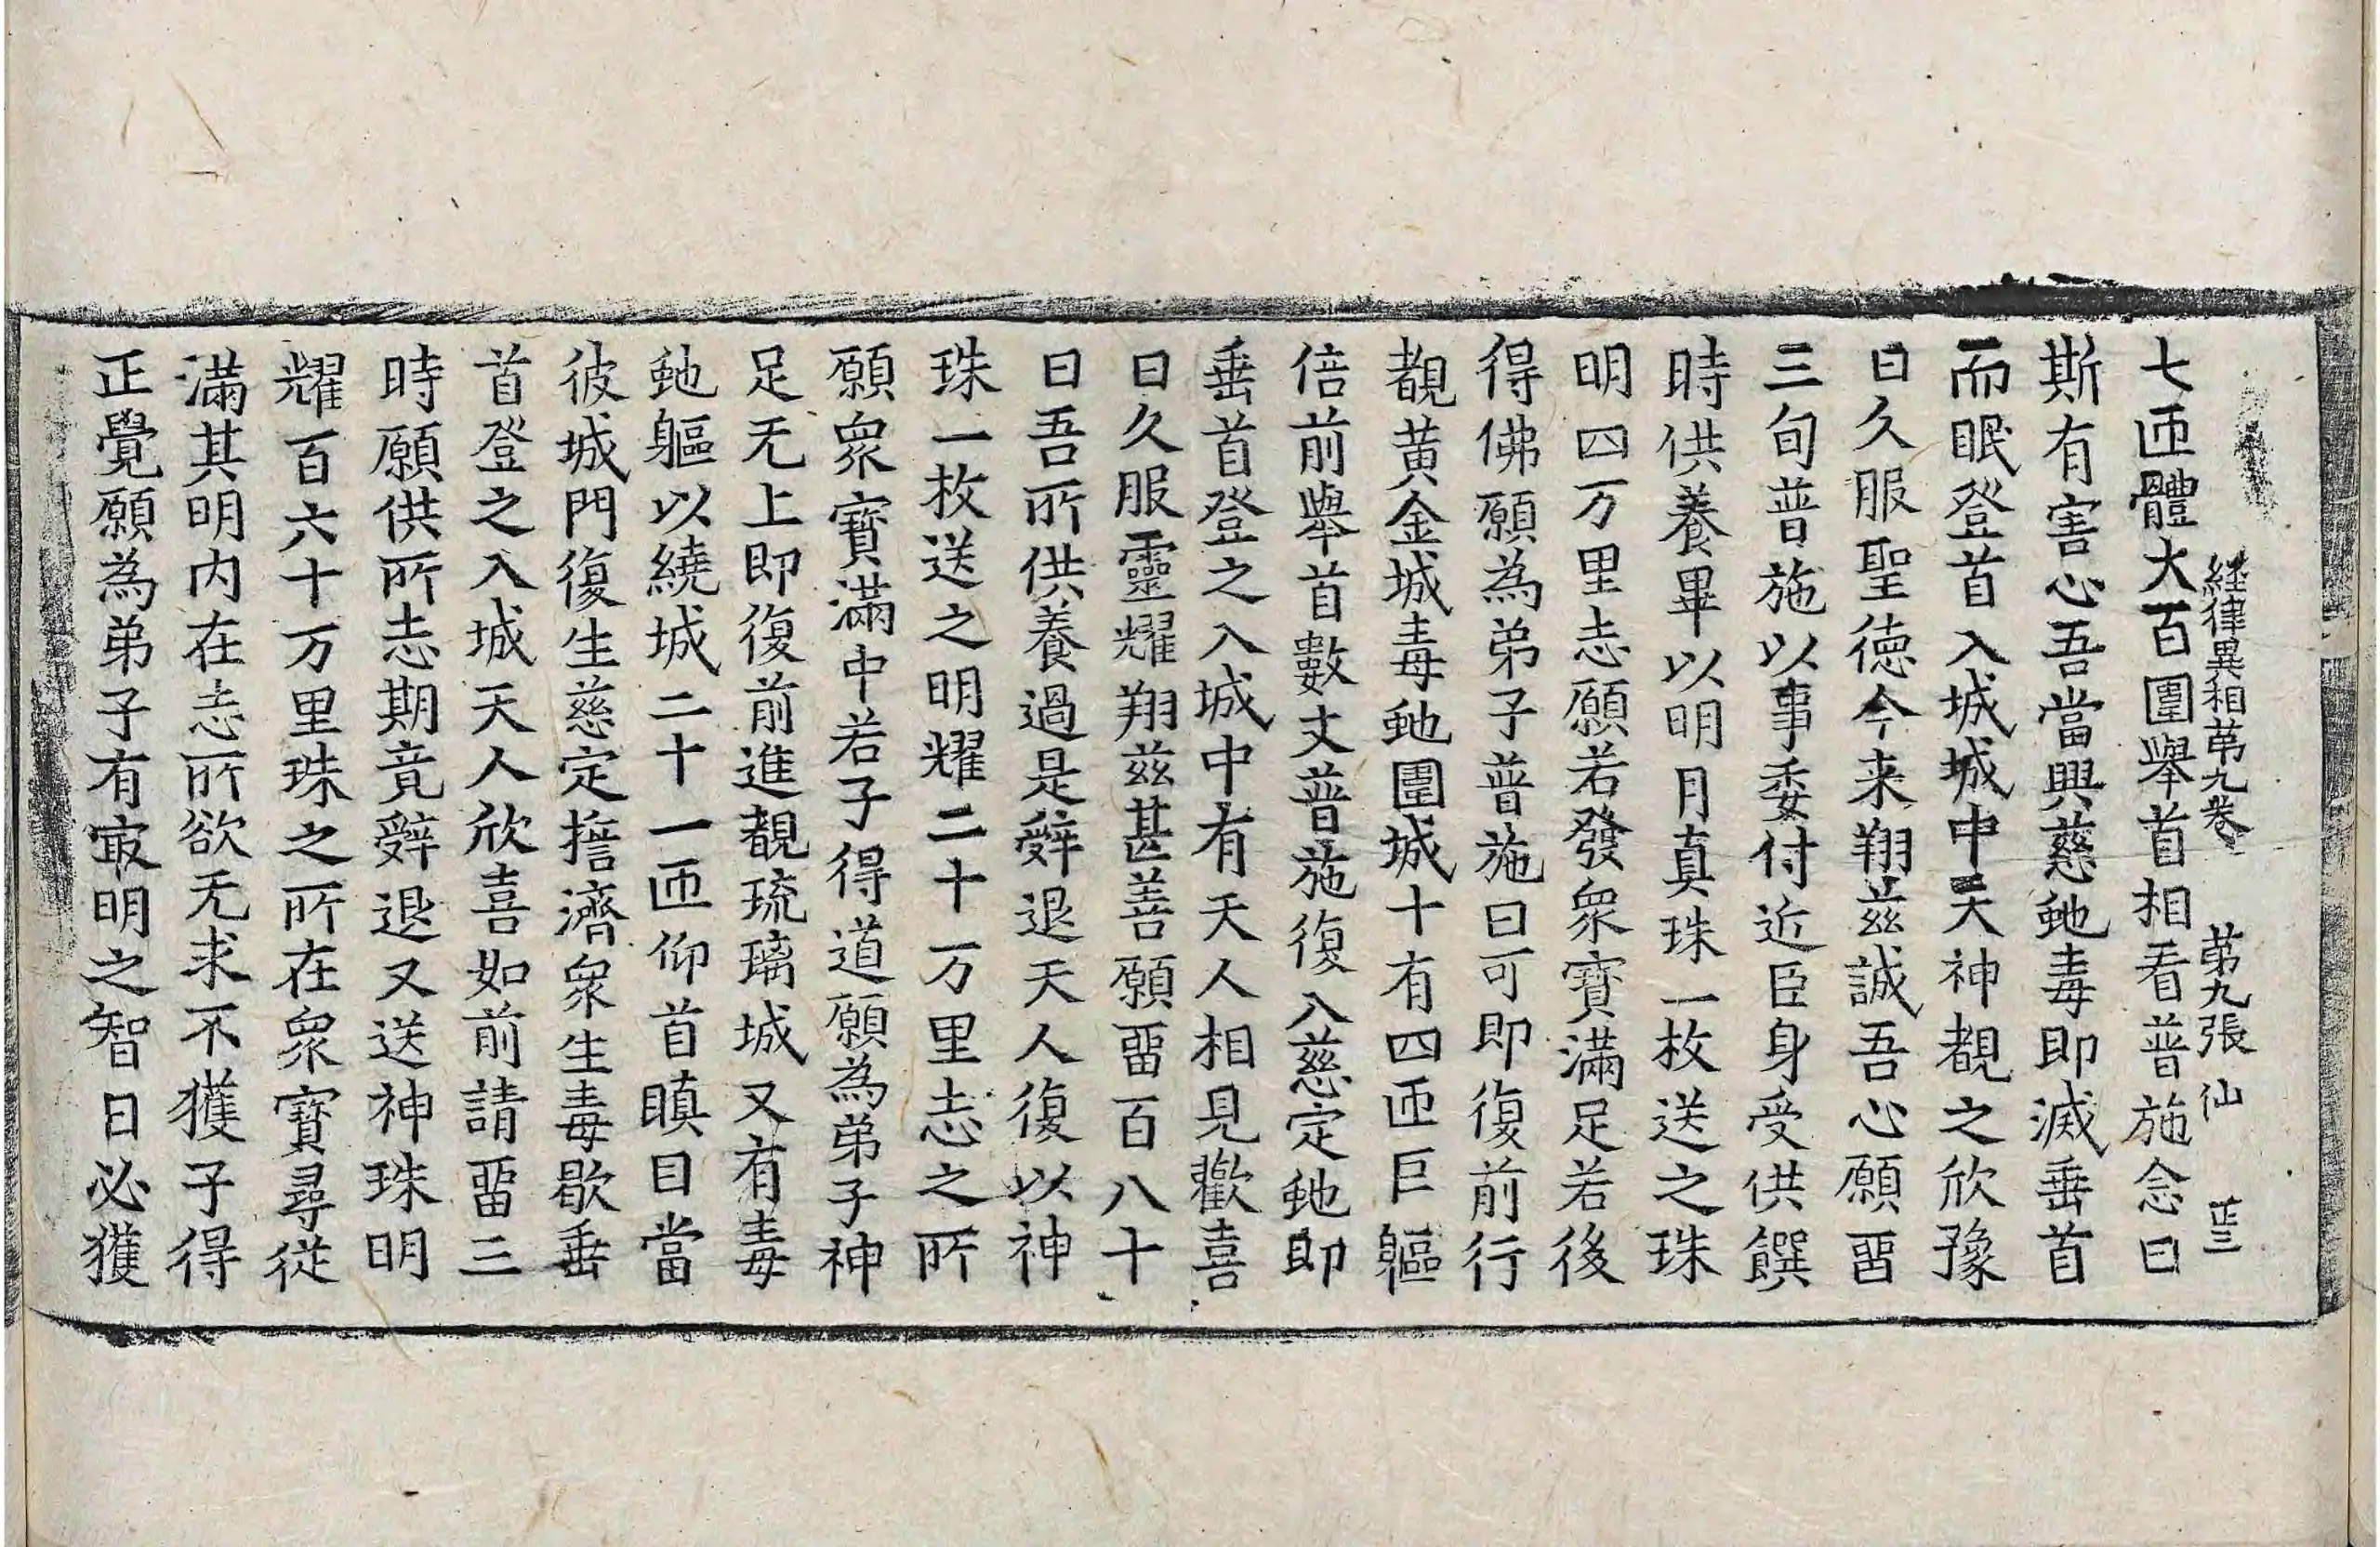 経律異相第九卷 第九張 仙
七匝體大百圍舉首相看普施念曰
斯有害心吾當興慈虵毒即滅垂首
而眠登首入城城中天神覩之欣豫
曰久服聖德今来翔茲誠吾心願畱
三旬普施以事委付近臣身受供饌
時供養畢以明月真珠一枚送之珠
明四万里志願若發衆寶滿足若後
得佛願為弟子普施曰可即復前行
覩黃金城毒虵圍城十有四匝巨軀
倍前舉首數丈普施復入慈定虵即
垂首登之入城中有天人相見歡喜
曰久服靈耀翔茲甚善願畱百八十
日吾所供養過是辤退天人復以神
珠一枚送之明耀二十万里志之所
願衆寶滿中若子得道願為弟子神
足无上即復前進覩琉璃城又有毒
虵軀以繞城二十一匝仰首瞋目當
彼城門復生慈定擔濟衆生毒歇垂
首登之入城天人欣喜如前請畱三
時願供所志期竟辤退又送神珠明
耀百六十万里珠之所在衆寶尋從
滿其明内在志所欲无求不獲子得
正覺願為弟子有㝡明之智曰必獲